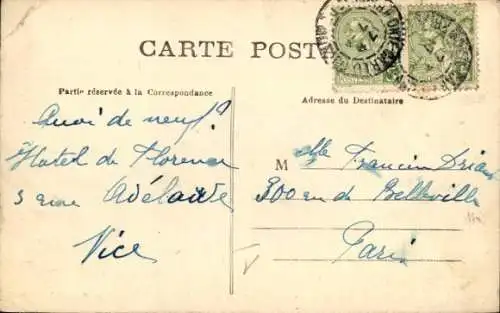 CARTE POST
Partie réservée à la Correspondance
Adresse du Destinataire
Quoi de neuf?
Hotel de Florence
3 rue Adélaïde
Nice
M elle Francin
300 rue de Belleville
Paris